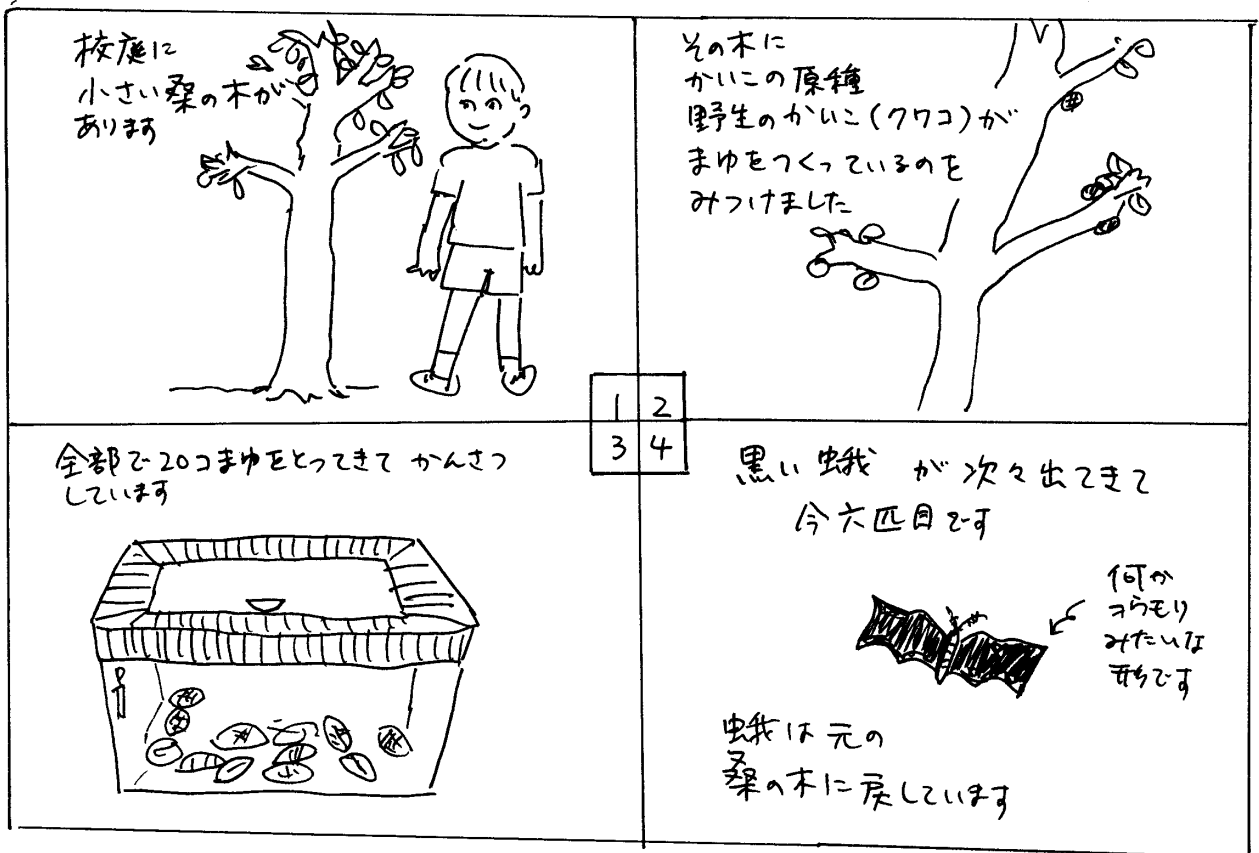 校庭に
小さい桑の木が
あります
その木に
かいこの原種
野生のかいこ(クワコ)が
まゆをつくっているのを
みつけました
1 2
3 4
全部で20コまゆをとってきて かんさつ
しています
黒い蛾 が次々出てきて
今六匹目です
何か
コウモリ
みたいな
形です
蛾は元の
桑の木に戻しています